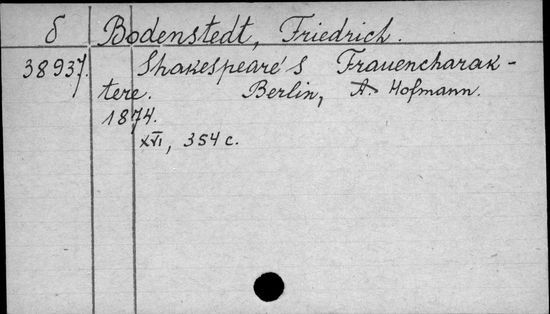 б Bodenstedt, Friedrich.
38937. Shakespeare's Frauencharak-
tere. Berlin, A. Hofmann.
1874.
XVI, 354 c.